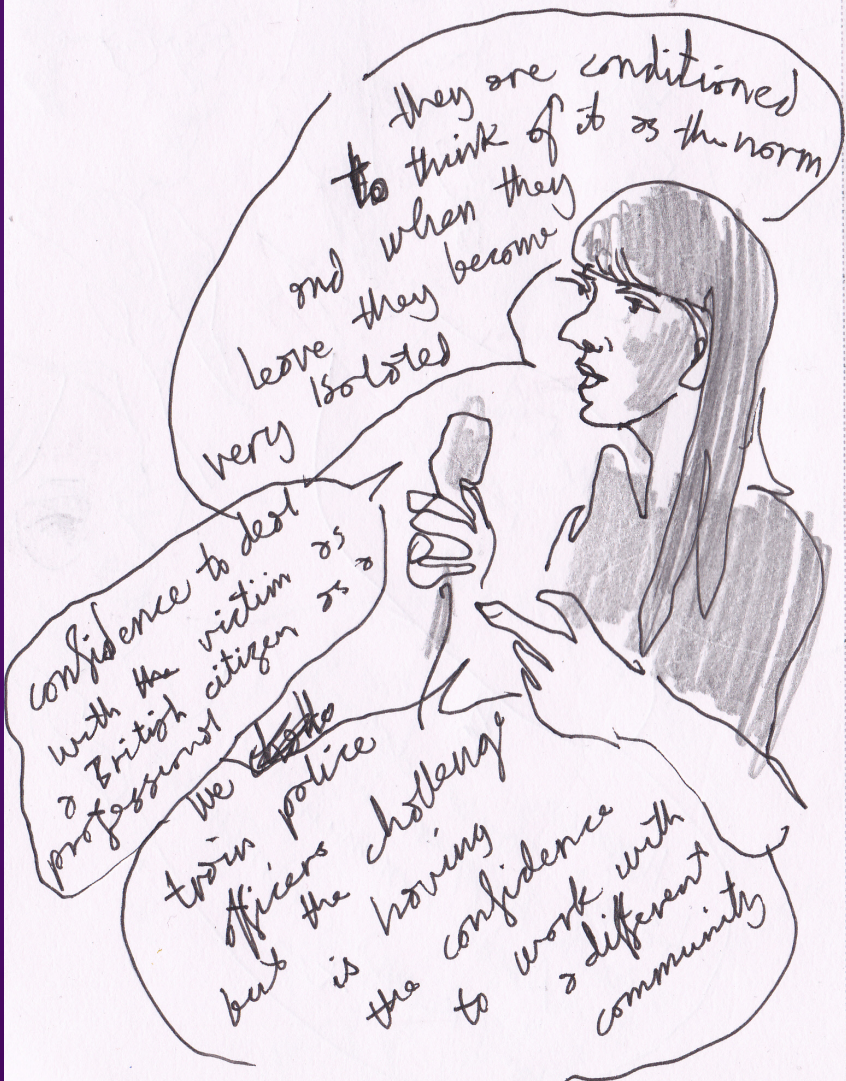 they are conditioned
to think of it as the norm
and when they
leave they become
very isolated
confidence to deal
with the victim as
a British citizen as a
professional
we
train police
officers
but the challenge
is having
the confidence
to work with
a different
community